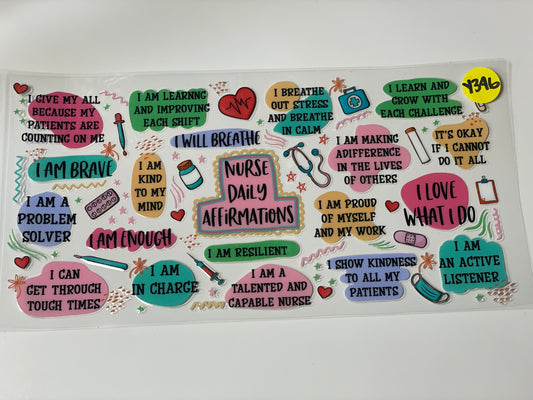 I GIVE MY ALL
BECAUSE MY
PATIENTS ARE
COUNTING ON ME
I AM LEARNNG
AND IMPROVING
EACH SHIFT
I BREATHE
OUT STRESS
AND BREATHE
IN CALM
I LEARN AND
GROW WITH
EACH CHALLENGE
Y346
I WILL BREATHE
I AM MAKING
ADIFFERENCE
IN THE LIVES
OF OTHERS
IT'S OKAY
IF I CANNOT
DO IT ALL
I AM BRAVE
I AM
KIND
TO MY
MIND
NURSE
DAILY
AFFIRMATIONS
I LOVE
WHAT I DO
I AM A
PROBLEM
SOLVER
I AM PROUD
OF MYSELF
AND MY WORK
I AM ENOUGH
I AM RESILIENT
I AM
AN ACTIVE
LISTENER
I CAN
GET THROUGH
TOUGH TIMES
I AM
IN CHARGE
I AM A
TALENTED AND
CAPABLE NURSE
I SHOW KINDNESS
TO ALL MY
PATIENTS